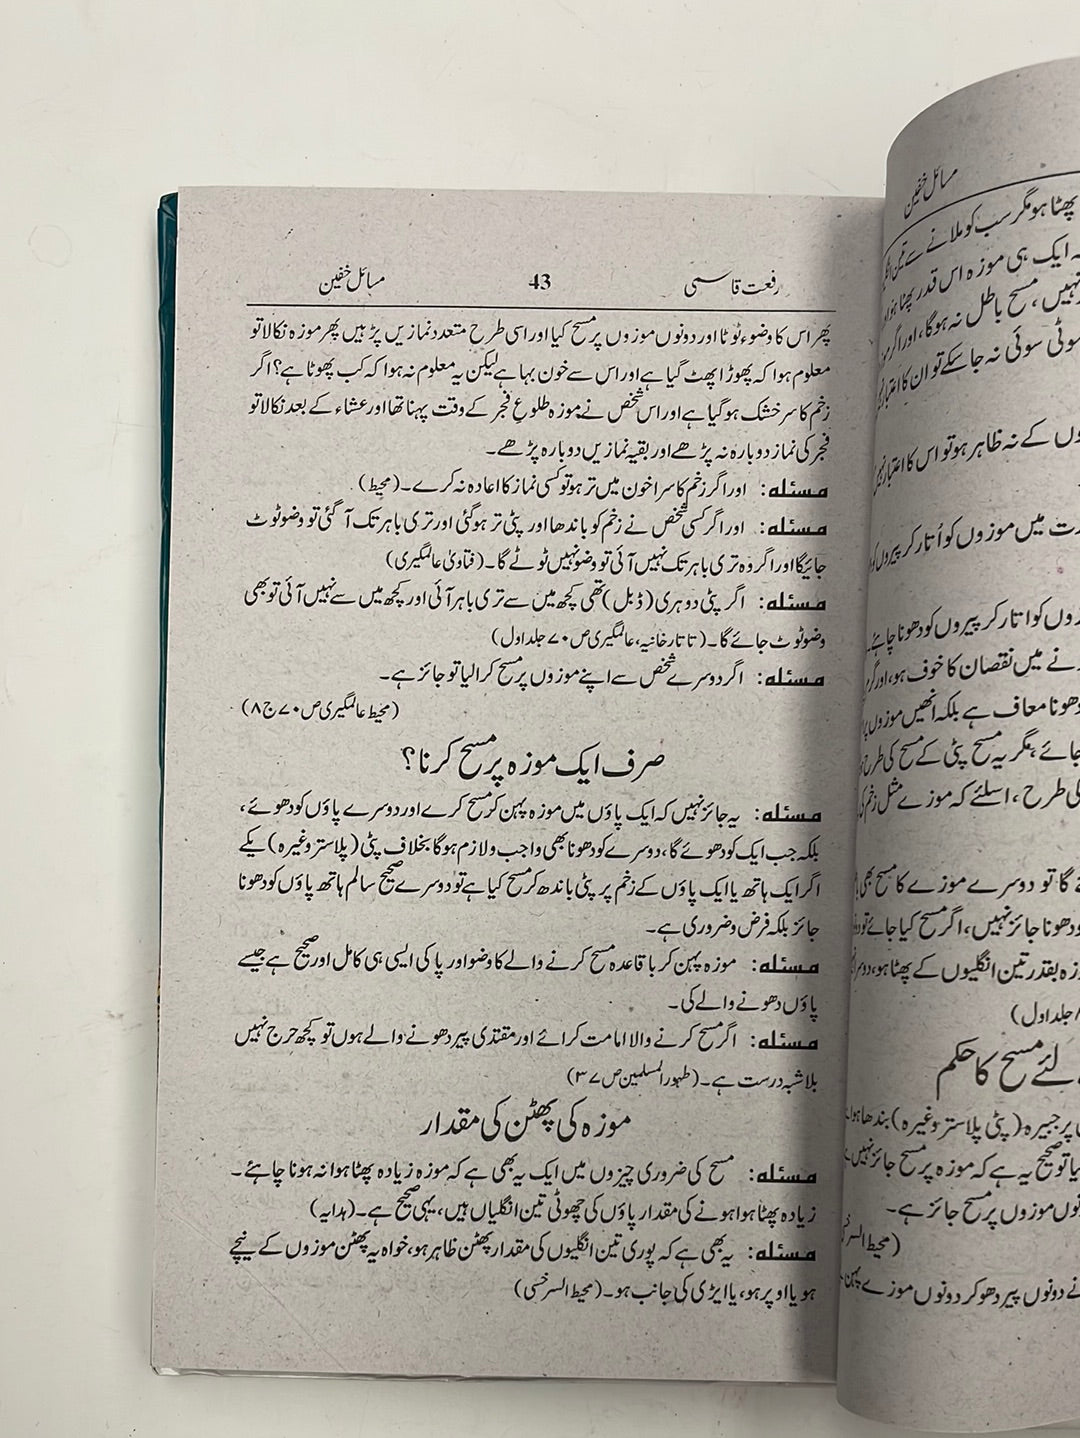 رفعت قاسمی 43 مسائل خفین
پھر اس کا وضوء ٹوٹا اور دونوں موزوں پر مسح کیا اور اسی طرح متعدد نمازیں پڑھیں پھر موزہ نکالا تو
معلوم ہوا کہ پھوڑا پھٹ گیا ہے اور اس سے خون بہا ہے لیکن یہ معلوم نہ ہوا کہ کب پھوٹا ہے؟ اگر
زخم کا سر خشک ہو گیا ہے اور اس شخص نے موزہ طلوع فجر کے وقت پہنا تھا اور عشاء کے بعد نکالا تو
فجر کی نماز دوبارہ نہ پڑھے اور بقیہ نمازیں دوبارہ پڑھے۔
مسئلہ: اور اگر زخم کا سرا خون میں تر ہو تو کسی نماز کا اعادہ نہ کرے۔ (محیط)
مسئلہ: اور اگر کسی شخص نے زخم کو باندھا اور پٹی تر ہو گئی اور تری باہر تک آ گئی تو وضو ٹوٹ
جائیگا اور اگر وہ تری باہر تک نہیں آئی تو وضو نہیں ٹوٹے گا۔ (فتاویٰ عالمگیری)
مسئلہ: اگر پٹی دوہری (ڈبل) تھی کچھ میں سے تری باہر آئی اور کچھ میں سے نہیں آئی تو بھی
وضو ٹوٹ جائے گا۔ (تاتارخانیہ، عالمگیری ص ۷۰ جلد اول)
مسئلہ: اگر دوسرے شخص سے اپنے موزوں پر مسح کرالیا تو جائز ہے۔
(محیط عالمگیری ص ۷۰ ج ۸)
صرف ایک موزہ پر مسح کرنا؟
مسئلہ: یہ جائز نہیں کہ ایک پاؤں میں موزہ پہن کر مسح کرے اور دوسرے پاؤں کو دھوئے،
بلکہ جب ایک کو دھوئے گا، دوسرے کو دھونا بھی واجب ولازم ہوگا بخلاف پٹی (پلاستر وغیرہ) کے
اگر ایک ہاتھ یا ایک پاؤں کے زخم پر پٹی باندھ کر مسح کیا ہے تو دوسرے صحیح سالم ہاتھ پاؤں کو دھونا
جائز بلکہ فرض وضروری ہے۔
مسئلہ: موزہ پہن کر باقاعدہ مسح کرنے والے کا وضو اور پاکی ایسی ہی کامل اور صحیح ہے جیسے
پاؤں دھونے والے کی۔
مسئلہ: اگر مسح کرنے والا امامت کرائے اور مقتدی پیر دھونے والے ہوں تو کچھ حرج نہیں
بلاشبہ درست ہے۔ (طہور المسلمین ص ۳۷)
موزہ کی پھٹن کی مقدار
مسئلہ: مسح کی ضروری چیزوں میں ایک یہ بھی ہے کہ موزہ زیادہ پھٹا ہوا نہ ہونا چاہئے۔
زیادہ پھٹا ہوا ہونے کی مقدار پاؤں کی چھوٹی تین انگلیاں ہیں، یہی صحیح ہے۔ (ہدایہ)
مسئلہ: یہ بھی ہے کہ پوری تین انگلیوں کی مقدار پھٹن ظاہر ہو، خواہ یہ پھٹن موزوں کے نیچے
ہو یا اوپر ہو، یا ایڑی کی جانب ہو۔ (محیط السرخسی)
مسائل خفین
پھٹا ہو مگر سب کو ملانے سے تین
ایک ہی موزہ اس قدر پھٹا ہوا
نہیں، مسح باطل نہ ہوگا، اور اگر
سوئی نہ جا سکے تو ان کا اعتبار
کے نہ ظاہر ہو تو اس کا اعتبار
میں موزوں کو اُتار کر پیروں
کو اتار کر پیروں کو دھونا چاہئے۔
میں نقصان کا خوف ہو، اور
دھونا معاف ہے بلکہ انھیں موزوں
جائے، مگر یہ مسح پٹی کے مسح کی طرح
کی طرح، اسلئے کہ موزے مثل زخم
گا تو دوسرے موزے کا مسح بھی
دھونا جائز نہیں، اگر مسح کیا جائے
بقدر تین انگلیوں کے پھٹا ہو،
جلد اول)
لئے مسح کا حکم
پر جبیرہ (پٹی پلاستر وغیرہ) بندھا ہوا
تو صحیح یہ ہے کہ موزہ پر مسح جائز نہیں
موزوں پر مسح جائز ہے۔
(محیط
نے دونوں پیر دھو کر دونوں موزے پہن